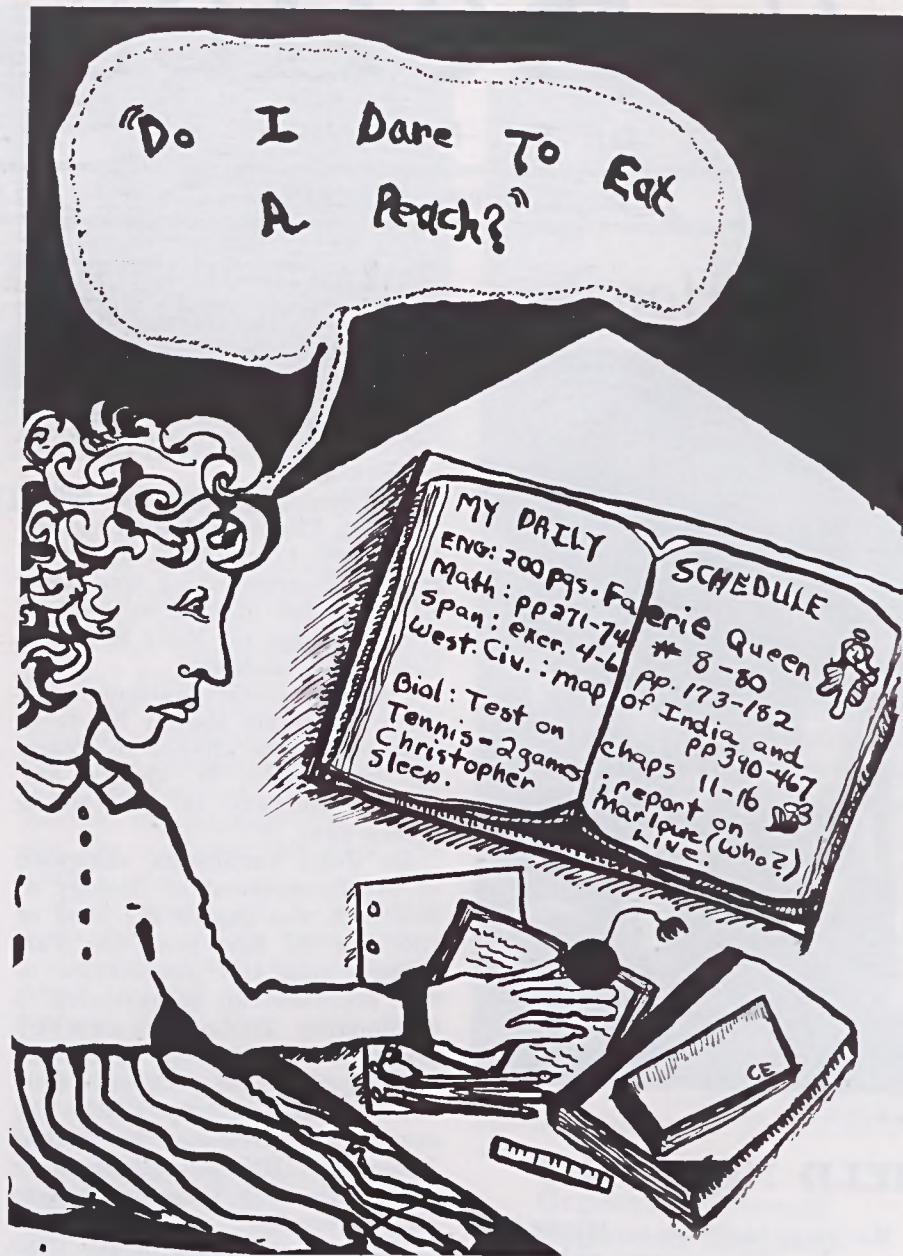 "Do I Dare To Eat
A Peach?"
MY DAILY SCHEDULE
ENG: 200 pgs. Faerie Queen
Math: pp 271-74 # 8-80
Span: exer. 4-6 pp. 173-182
West. Civ.: map of India and
pp 390-467
Biol: Test on chaps 11-16
Tennis - 2 games. report on
Christopher Marlowe (who?)
Sleep. live.
CE